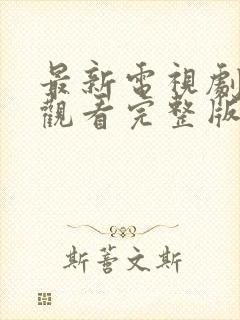 最新電視劇
觀看完整版
斯蕾文斯